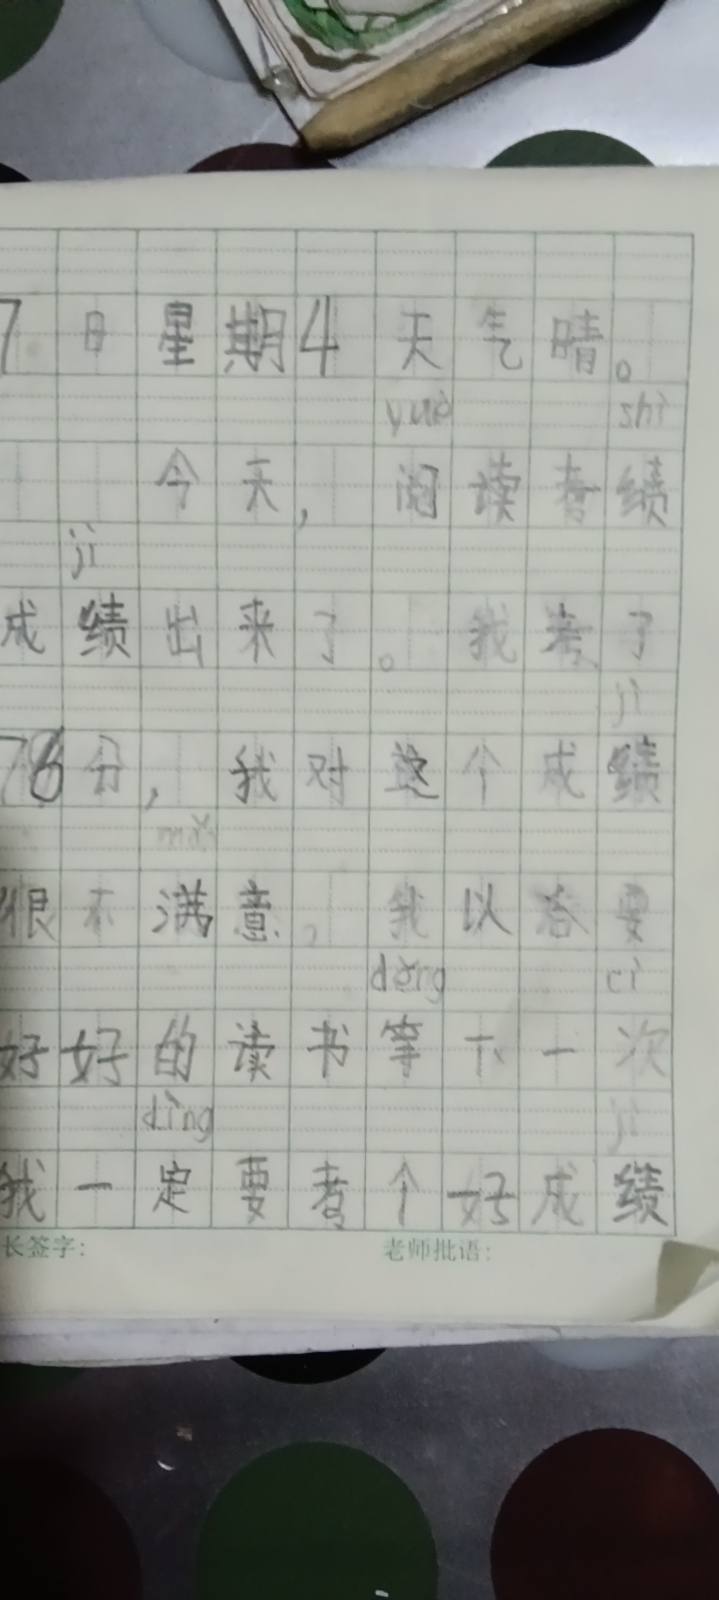 7日星期4天气晴。
yuè shì
今天，阅读考绩
jì
成绩出来了。我考了
jì
78分，我对这个成绩
mǎn
很不满意，我以后要
děng cì
好好的读书等下一次
dìng jì
我一定要考个好成绩
长签字： 老师批语：